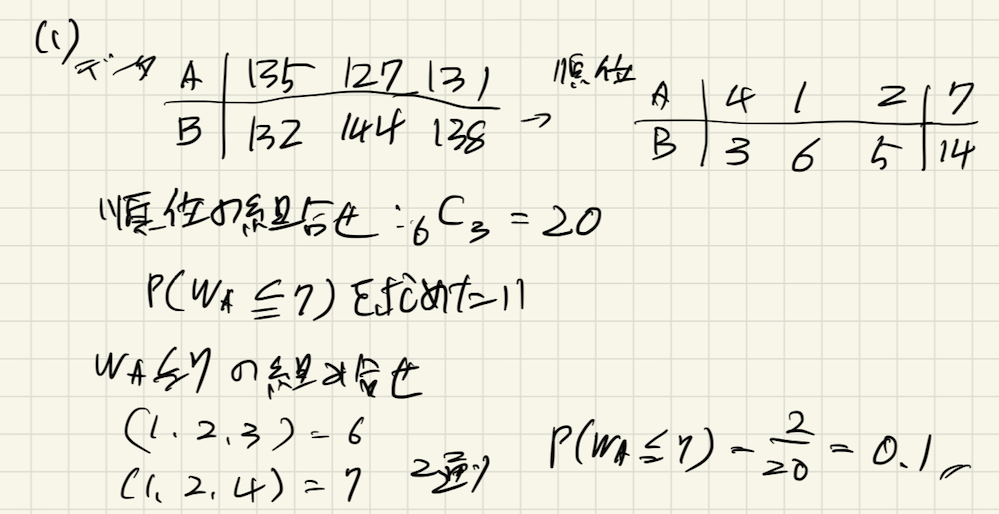 (1) データ A | 135 127 131 → 順位 A | 4 1 2 | 7
B | 132 144 138 B | 3 6 5 | 14
順位の組合せ : ₆C₃ = 20
P(W_A ≦ 7) を求めたい
W_A ≦ 7 の組み合せ
(1. 2. 3) = 6
(1. 2. 4) = 7 2通り P(W_A ≦ 7) = 2/20 = 0.1